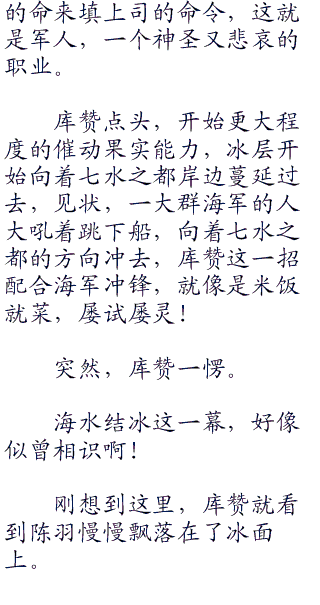 的命来填上司的命令，这就
是军人，一个神圣又悲哀的
职业。
库赞点头，开始更大程
度的催动果实能力，冰层开
始向着七水之都岸边蔓延过
去，见状，一大群海军的人
大吼着跳下船，向着七水之
都的方向冲去，库赞这一招
配合海军冲锋，就像是米饭
就菜，屡试屡灵！
突然，库赞一愣。
海水结冰这一幕，好像
似曾相识啊！
刚想到这里，库赞就看
到陈羽慢慢飘落在了冰面
上。